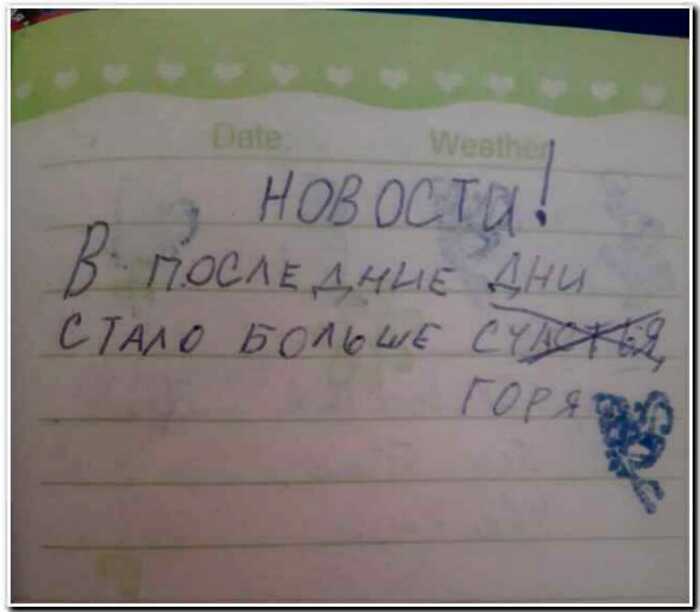 Date: Weather
НОВОСТИ!
В ПОСЛЕДНИЕ ДНИ
СТАЛО БОЛЬШЕ СЧАСТЕЯ
ГОРЯ